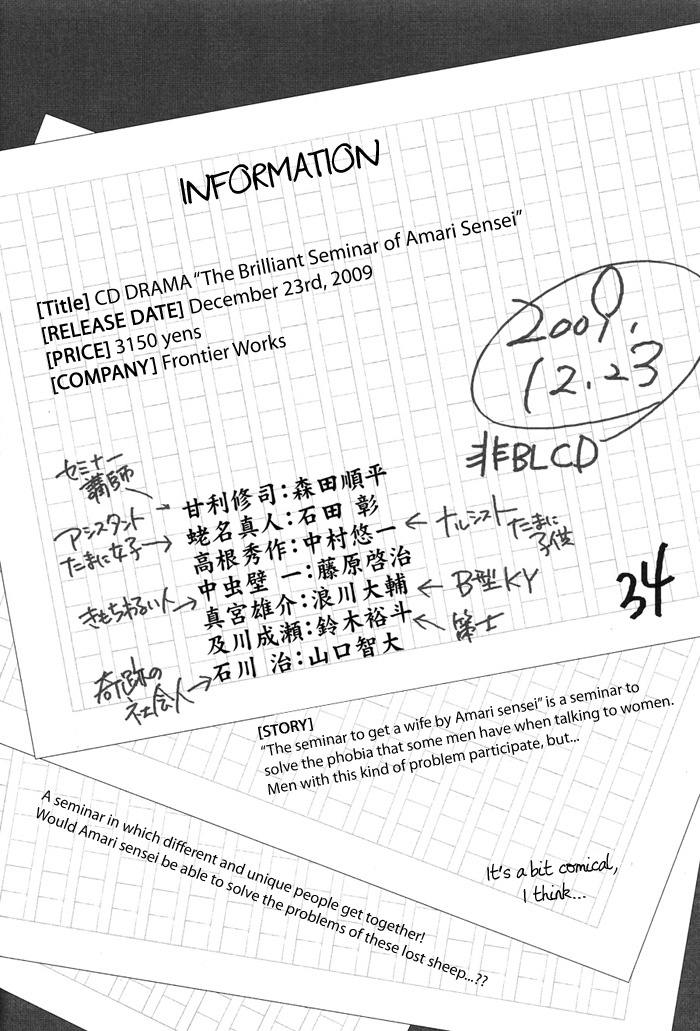 INFORMATION
[Title] CD DRAMA “The Brilliant Seminar of Amari Sensei”
[RELEASE DATE] December 23rd, 2009
[PRICE] 3150 yens
[COMPANY] Frontier Works
2009.
12.23
非BLCD
セミナー
講師
甘利修司:森田順平
アシスタント
たまに女子→
蛯名真人:石田 彰
高根秀作:中村悠一
←ナルシスト
たまに
子供
中虫壁 一:藤原啓治
きもちわるい人→
真宮雄介:浪川大輔
←B型KY
及川成瀬:鈴木裕斗
←策士
奇跡の
社会人→
石川 治:山口智大
34
[STORY]
“The seminar to get a wife by Amari sensei” is a seminar to
solve the phobia that some men have when talking to women.
Men with this kind of problem participate, but...
A seminar in which different and unique people get together!
Would Amari sensei be able to solve the problems of these lost sheep...??
It's a bit comical,
I think...